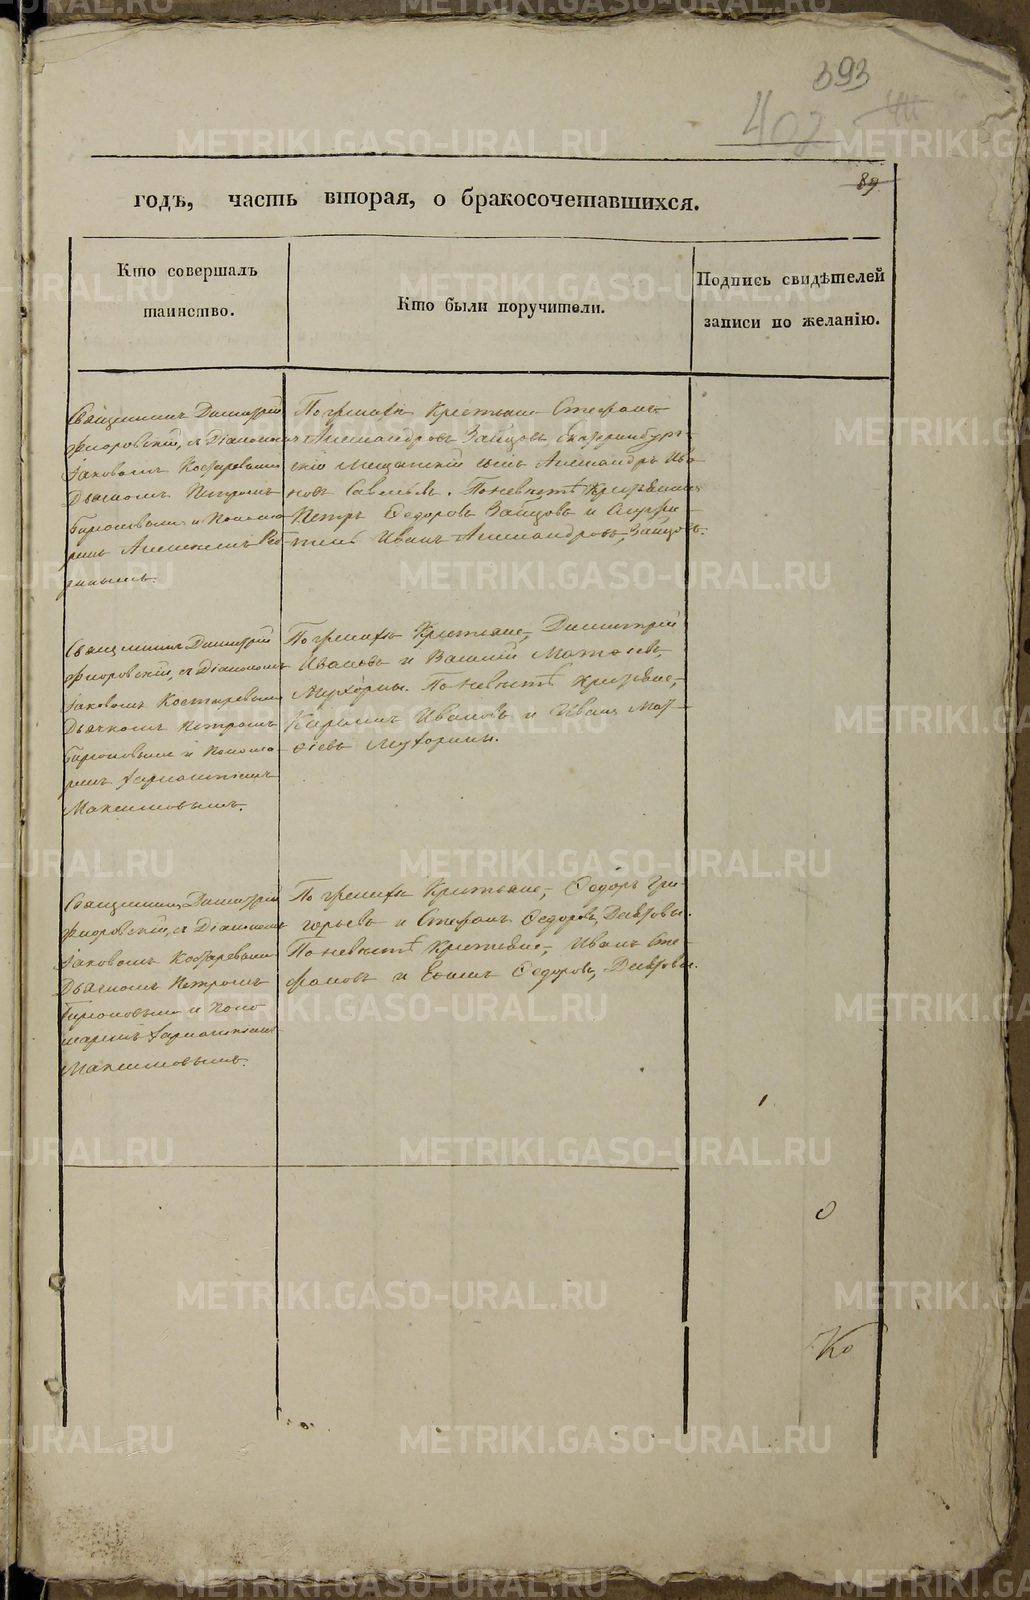 393
402
89
годъ, часть вторая, о бракосочетавшихся.
Кто совершалъ
таинство.
Кто были поручители.
Подпись свидѣтелей
записи по желанію.
Священникъ Димитрій
Флоровскій, съ Діакономъ
Іаковомъ Костаревымъ
Дьячкомъ Петромъ
и Поно
маремъ Алексѣемъ
По женихѣ Крестьяне Стефанъ
Александровъ Зайцовъ Екатеринбург
скій мещанскій сынъ Александръ Ива
новъ Савельевъ. По невѣстѣ Крестьянинъ
Петръ Ѳедоровъ Зайцовъ и
Иванъ Александровъ Зайцовъ.
Священникъ Димитрій
Флоровскій, съ Діакономъ
Іаковомъ Костаревымъ
Дьячкомъ Петромъ
и Понома
ремъ
Максимовымъ.
По женихѣ Крестьяне, Димитрій
Ивановъ и Василій Матѳеевъ
Мухорины. По невѣстѣ Крестьяне,
Кирилъ Ивановъ и Иванъ Мат
ѳеевъ Мухорины.
Священникъ Димитрій
Флоровскій, съ Діакономъ
Іаковомъ Костаревымъ
Дьячкомъ Петромъ
и Поно
маремъ
Максимовымъ.
По женихѣ Крестьяне, Ѳедоръ Гри
горьевъ и Стефанъ Ѳедоровъ
По невѣстѣ Крестьяне, Иванъ Сте
фановъ и Ѳедоровъ
Ко
METRIKI.GASO-URAL.RU